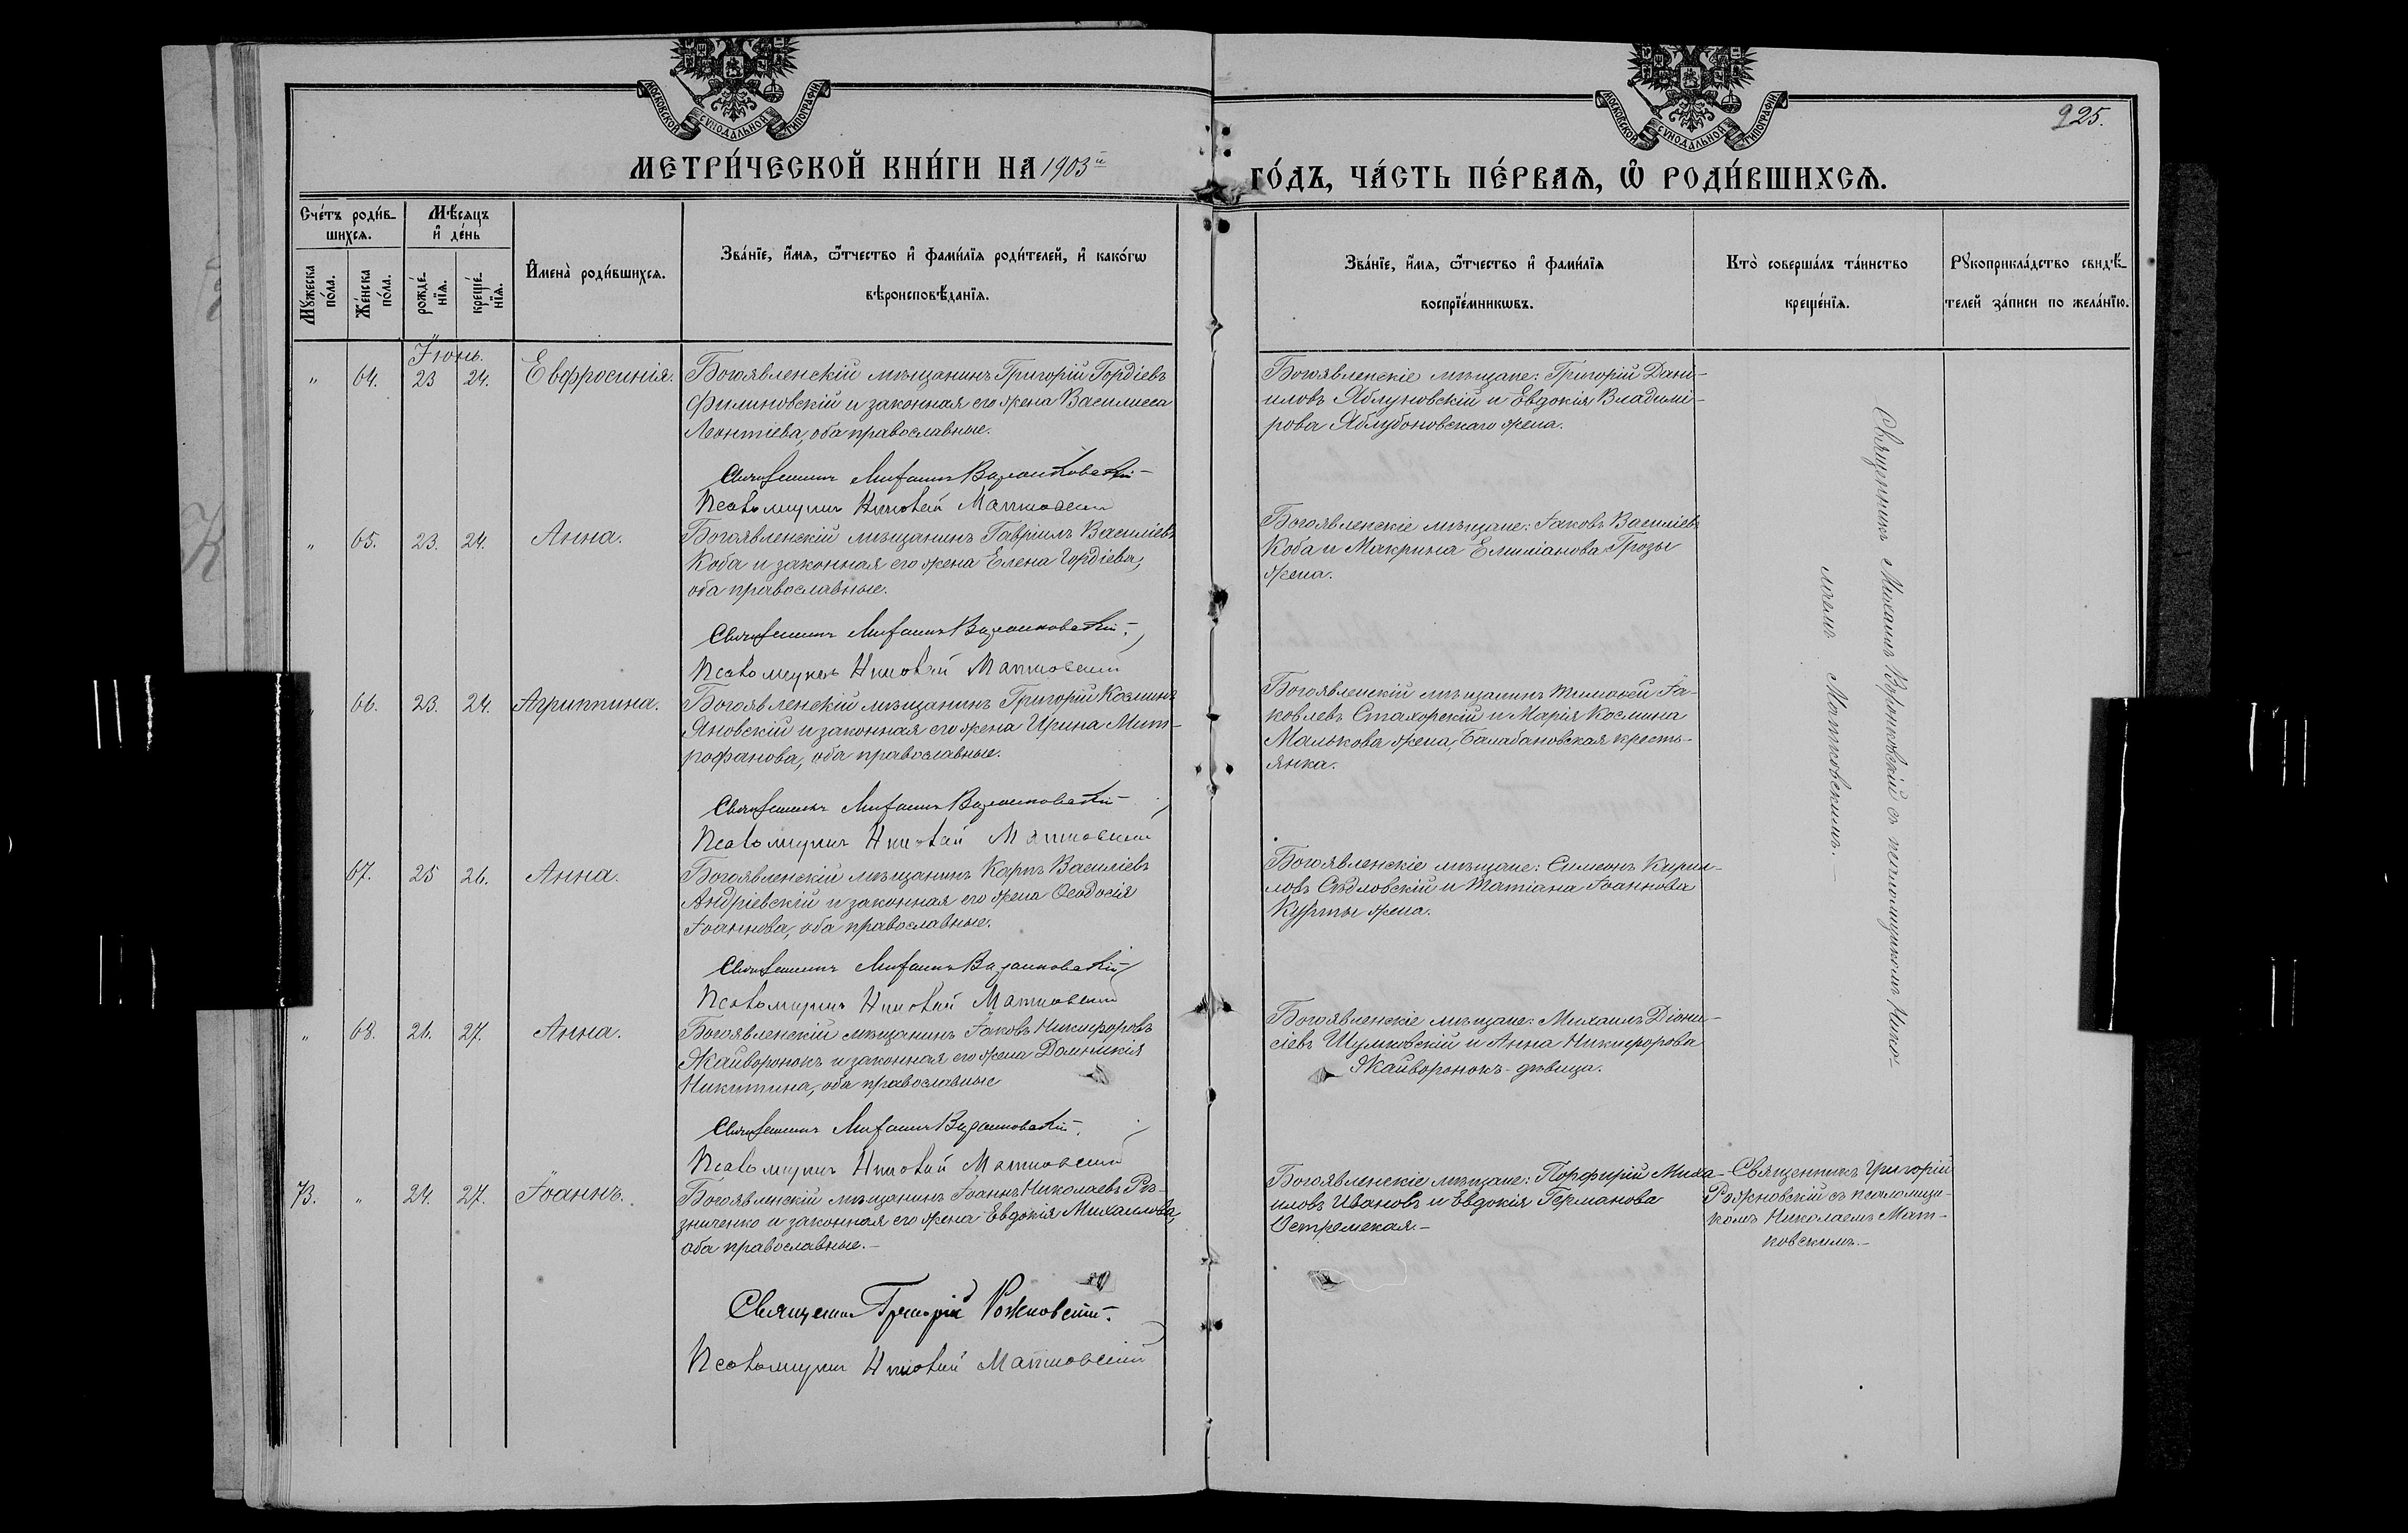 МОСКОВСКОЙ СѴНОДАЛЬНОЙ ТИПОГРАФІИ
МОСКОВСКОЙ СѴНОДАЛЬНОЙ ТИПОГРАФІИ
225.
МЕТРИ́ЧЕСКОЙ КНИ́ГИ НА 1903й
ГО́ДЪ, ЧА́СТЬ ПЕ́РВАѦ, Ѡ РОДИ́ВШИХСѦ.
Сче́тъ роди́в-
шихсѧ.
Мѣ́сѧцъ
и҆ де́нь
Мꙋ́жеска по́ла.
Же́нска по́ла.
рожде́-
нїѧ.
креще́-
нїѧ.
И҆мена̀ роди́вшихсѧ.
Зва́нїе, и҆́мѧ, ѻ҆́тчество и҆ фами́лїѧ роди́телей, и҆ како́гѡ
вѣроисповѣ́данїѧ.
Зва́нїе, и҆́мѧ, ѻ҆́тчество и҆ фами́лїѧ
воспрїе́мникѡвъ.
Кто̀ соверша́лъ та́инство
креще́нїѧ.
Рꙋкоприкла́дство свидѣ́-
телей за́писи по жела́нїю.
Іюнь.
" 64. 23 24. Евфросинія.
Богоявленскій мѣщанинъ Григорій Гордіевъ
Филиновскій и законная его жена Василисса
Леонтіева, оба православные.
Священникъ Михаилъ Воронковскій
Псаломщикъ Николай Матковскій
Богоявленскіе мѣщане: Григорій Дани-
иловъ Яблуновскій и Евдокія Владимі-
рова Яблубоновскаго жена.
" 65. 23. 24. Анна.
Богоявленскій мѣщанинъ Гавріилъ Василіевъ
Коба и законная его жена Елена Гордіева,
оба православные.
Священникъ Михаилъ Воронковскій.
Псаломщикъ Николай Матковскій
Богоявленскіе мѣщане: Іаковъ Василіевъ
Коба и Макрина Емиліанова Грозы
жена.
" 66. 23. 24. Агриппина.
Богоявленскій мѣщанинъ Григорій Косминъ
Яновскій и законная его жена Ирина Мит-
рофанова, оба православные.
Священникъ Михаилъ Воронковскій
Псаломщикъ Николай Матковскій
Богоявленскій мѣщанинъ Тимоѳей Іа-
ковлевъ Стахорскій и Марія Космина
Малькова жена, Балабановская кресть-
янка.
67. 25 26. Анна.
Богоявленскій мѣщанинъ Карпъ Василіевъ
Андріевскій и законная его жена Ѳеодосія
Іоаннова, оба православные.
Священникъ Михаилъ Воронковскій
Псаломщикъ Николай Матковскій
Богоявленскіе мѣщане: Симеонъ Кирил-
ловъ Сѣдловскій и Татіана Іоаннова
Курты жена.
" 68. 26. 27. Анна.
Богоявленскій мѣщанинъ Іаковъ Никифоровъ
Жайворонокъ и законная его жена Домникія
Никитина, оба православные
Священникъ Михаилъ Воронковскій.
Псаломщикъ Николай Матковскій
Богоявленскіе мѣщане: Михаилъ Діони-
сіевъ Шумковскій и Анна Никифорова
Жайворонокъ - дѣвица.
Священникъ Михаилъ Воронковскій съ псаломщикомъ Нико-
лаемъ Матковскимъ.-
73. " 24. 27. Іоаннъ.
Богоявленскій мѣщанинъ Іоаннъ Николаевъ Рѣ-
зниченко и законная его жена Евдокія Михаилова,
оба православные.-
Священникъ Григорій Рожновскій.
Псаломщикъ Николай Матковскій
Богоявленскіе мѣщане: Порфирій Миха-
иловъ Ивановъ и Евдокія Германова
Остремская.-
Священникъ Григорій
Рожновскій съ псаломщи-
комъ Николаемъ Мат-
ковскимъ.-